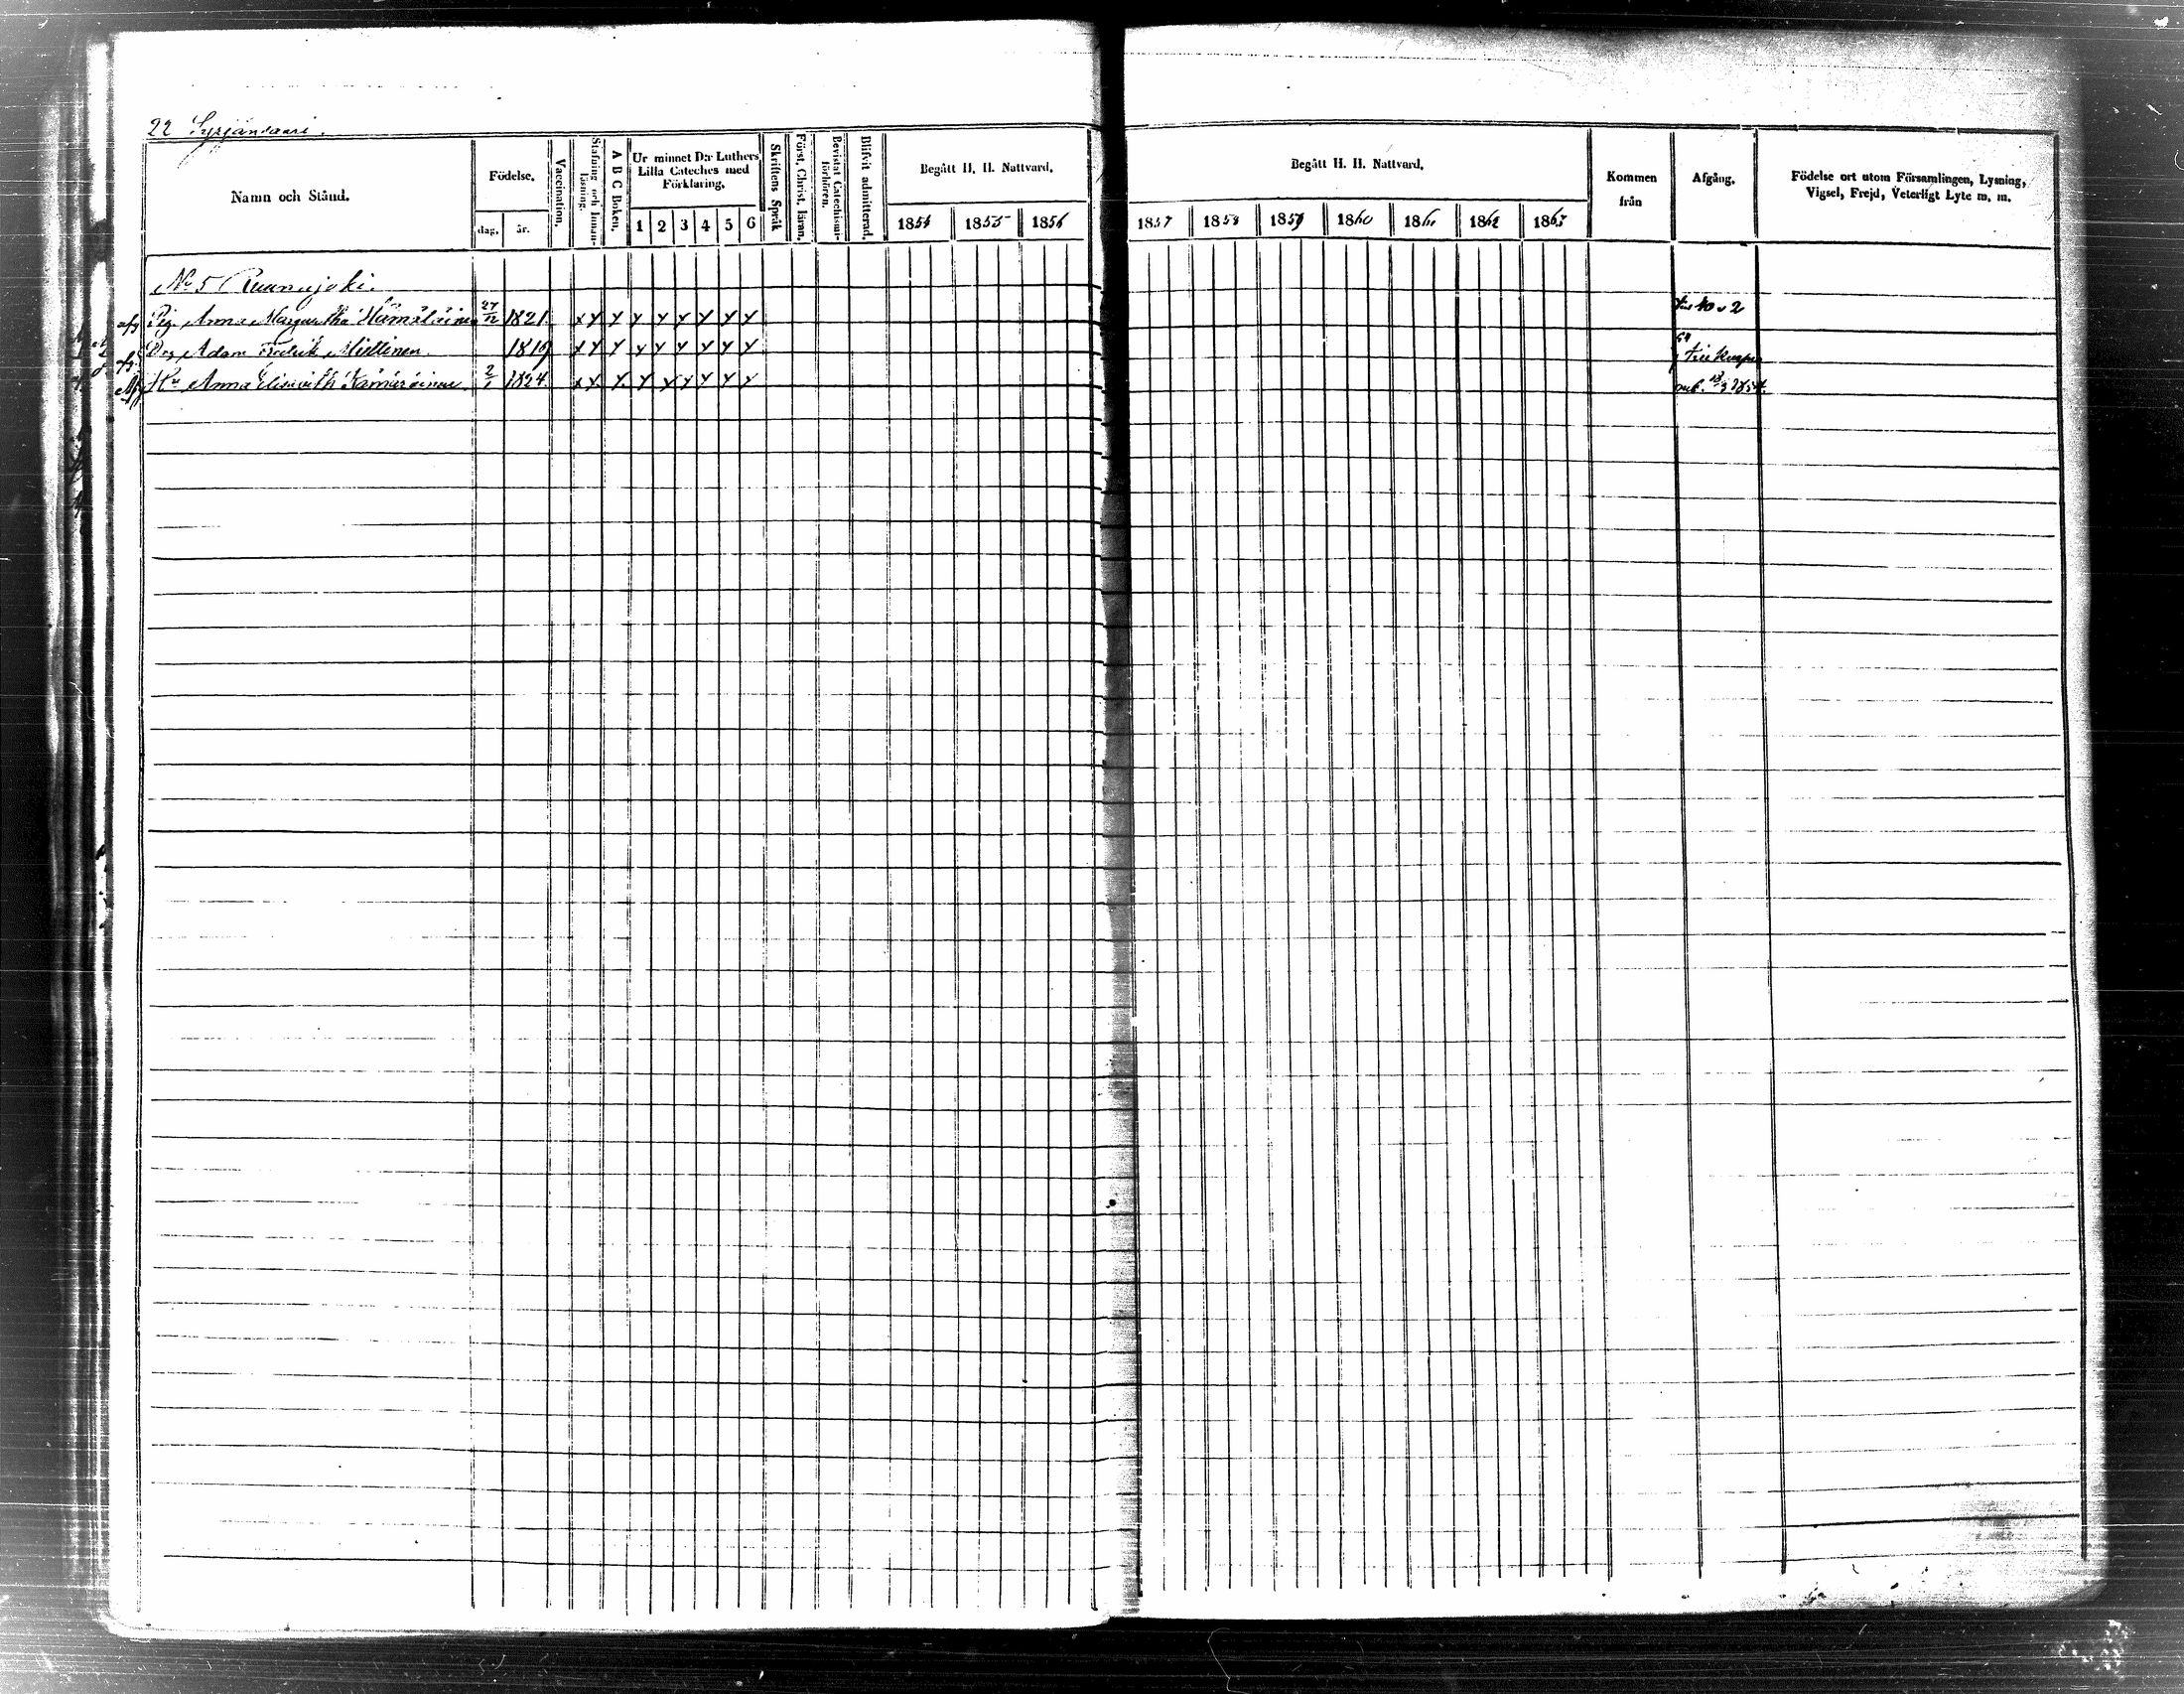 22 Syrjänsaari.
Namn och Stånd.
Födelse.
dag. år.
Vaccination.
Stafning och Innan-läsning.
A B C Boken.
Ur minnet D:r Luthers Lilla Cateches med Förklaring.
1 2 3 4 5 6
Skriftens Språk
Först. Christ. läran.
Bevistat Catechismi-förhören.
Blifvit admitterad.
Begått H. H. Nattvard.
1854 1855 1856
Begått H. H. Nattvard.
1857 1858 1859 1860 1861 1862 1863
Kommen från
Afgång.
Födelse ort utom Församlingen, Lysning, Vigsel, Frejd, Veterligt Lyte m. m.
No 5
afg Pig. Anna Margaretha Hämäläinen 27/12 1821. x x x x x x x x x
Dr. Adam Fredrik Miettinen 1819 x x x x x x x x x
Hu Anna Elisabeth 2/1 1824 x x x x x x x x x